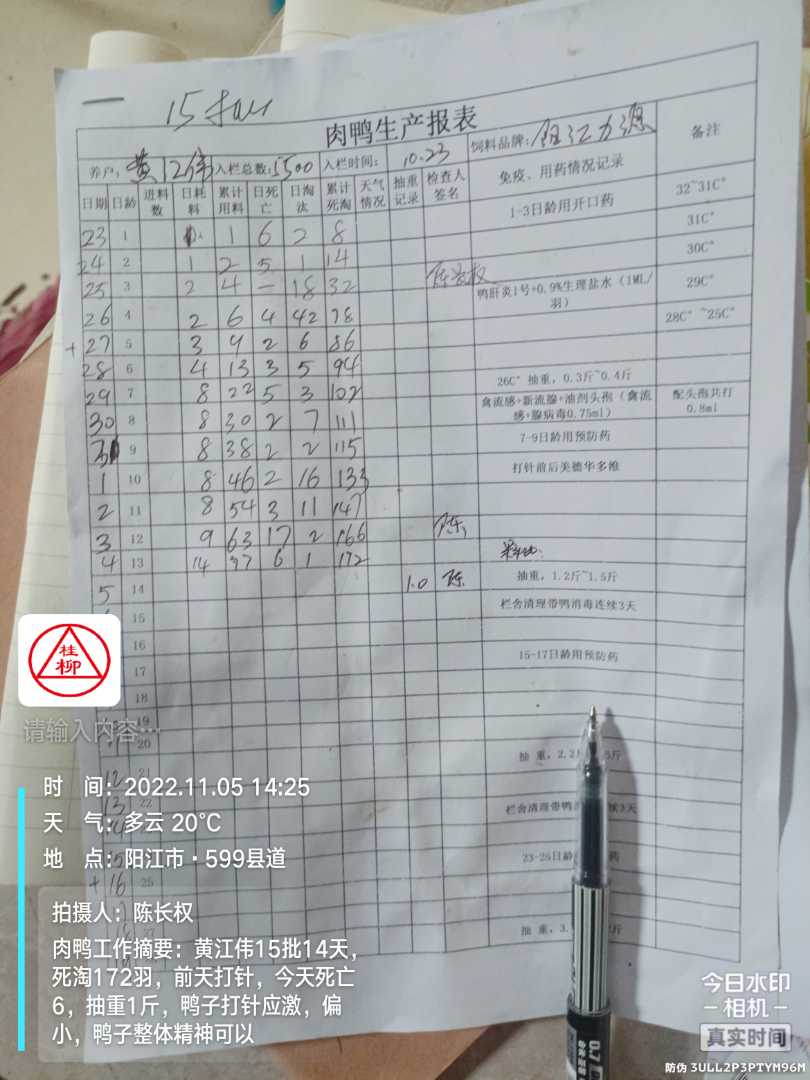 肉鸭生产报表
养户: 黄江伟 入栏总数: 5500 入栏时间: 10.23 饲料品牌: 阳江力源 备注
日期 日龄 进料数 日耗料 累计用料 日死亡 日淘汰 累计死淘 天气情况 抽重记录 检查人签名 免疫、用药情况记录
23 1 1 6 2 8 1-3日龄用开口药 32~31C°
31C°
24 2 1 2 5 1 14 30C°
25 3 2 4 一 18 32 鸭肝炎1号+0.9%生理盐水（1ML/羽） 29C°
26 4 2 6 4 42 78 28C° ~25C°
+ 27 5 3 9 2 6 86
28 6 4 13 3 5 94 26C° 抽重，0.3斤~0.4斤
29 7 8 22 5 3 102 禽流感+新流腺+油剂头孢（禽流感+腺病毒0.75ml） 配头孢共打0.8ml
30 8 8 30 2 7 111
31 9 8 38 2 2 115 7-9日龄用预防药
1 10 8 46 2 16 133 打针前后美德华多维
2 11 8 54 3 11 147
3 12 9 63 17 2 166 陈
4 13 14 77 6 1 172
5 14 1.0 陈 抽重，1.2斤~1.5斤
15 栏舍清理带鸭消毒连续3天
16
17 15-17日龄用预防药
18
19
20
12 21 抽 重，2.2 5斤
13 22 栏舍清理带鸭 续3天
23-25日龄 药
+ 16 25
抽 重，3.
桂柳
请输入内容…
时 间：2022.11.05 14:25
天 气：多云 20℃
地 点：阳江市·599县道
拍摄人：陈长权
肉鸭工作摘要：黄江伟15批14天，
死淘172羽，前天打针，今天死亡
6，抽重1斤，鸭子打针应激，偏
小，鸭子整体精神可以
0.7
今日水印
相机
真实时间
防伪 3ULL2P3PTYM96M